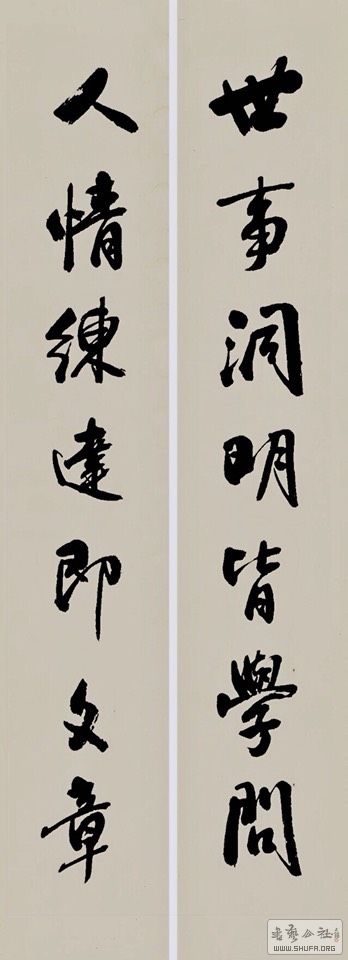 世事洞明皆學問
人情練達即文章
書藝公社
WWW.SHUFA.ORG